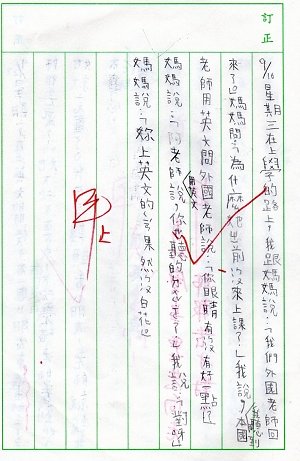 訂正
9/16星期三在上學的路上,我跟媽媽說:「我們外國老師回
來了」媽媽問:「為什麼他之前沒來上課?」我說:「本國
我聽到
老師用英文問外國老師說:「你眼睛有沒有好一點」
用英文
媽媽說:「阿老師說你也聽的 了」我說:「對呀」
媽媽說:「妳上英文的錢果然沒白花」
甲上